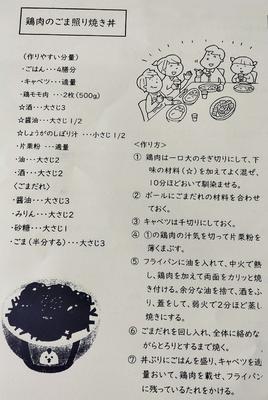 鶏肉のごま照り焼き丼
(作りやすい分量)
・ごはん‥‥4膳分
・キャベツ‥‥適量
・鶏モモ肉 ‥‥2枚(500g)
☆酒‥‥大さじ3
☆醤油‥‥大さじ1/2
☆しょうがのしぼり汁 ‥‥小さじ1/2
・片栗粉 ‥‥適量
・油‥‥大さじ2
・酒‥‥大さじ2
(ごまだれ)
・醤油‥‥大さじ3
・みりん‥‥大さじ2
・砂糖‥‥大さじ1
・ごま(半ずりする)‥‥大さじ3
<作り方>
① 鶏肉は一口大のそぎ切りにして、下
味の材料(☆)を加えてよく混ぜ、
10分ほどおいて馴染ませる。
② ボールにごまだれの材料を合わせ
ておく。
③ キャベツは千切りにしておく。
④ ①の鶏肉の汁気を切って片栗粉を
薄くまぶす。
⑤ フライパンに油を入れて、中火で熱
し、鶏肉を加えて両面をカリッと焼き
付ける。余分な油を捨て、酒をふ
り、蓋をして、弱火で2分ほど蒸し
焼きにする。
⑥ ごまだれを回し入れ、全体に絡めな
がらとろりとするまで焼く。
⑦ 丼ぶりにごはんを盛り、キャベツを適
量おいて、鶏肉を載せ、フライパン
に残っているたれをかける。